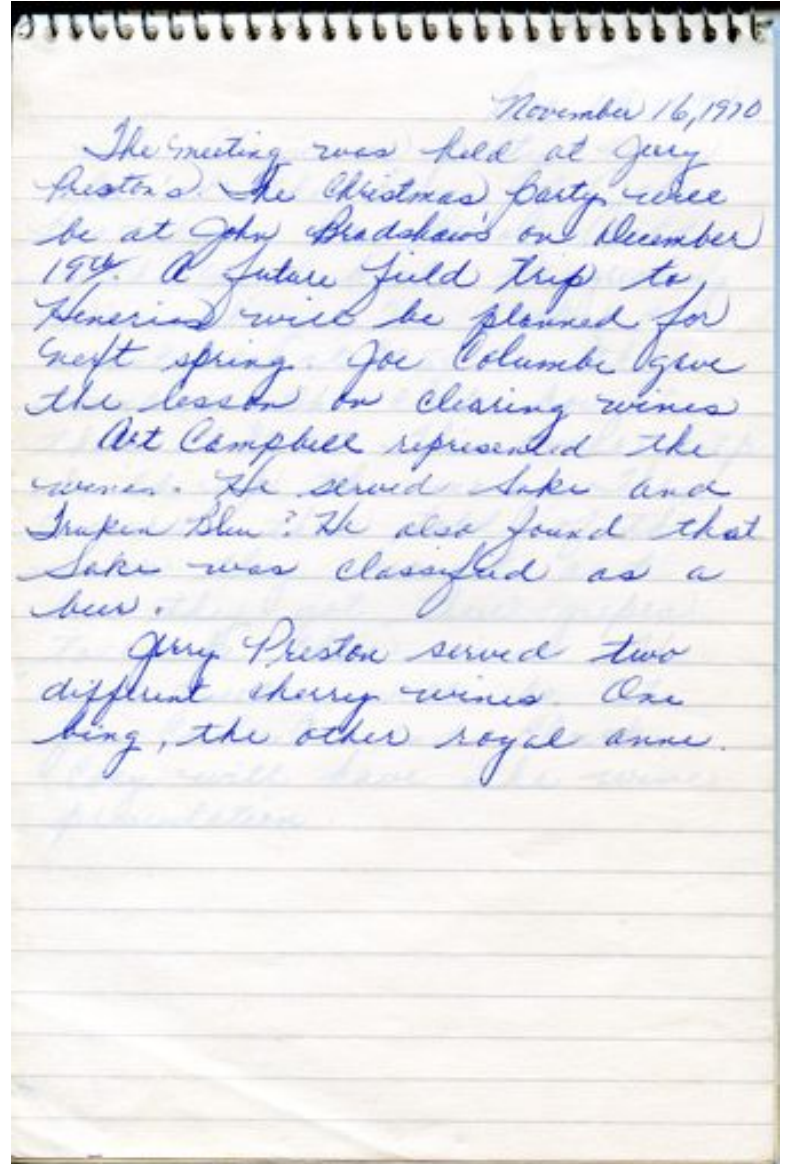 November 16, 1970
The meeting was held at Jerry
Preston's. The Christmas party will
be at John Bradshaw's on December
19th. A future field trip to
will be planned for
next spring. Joe Columbe gave
the lesson on clearing wines
Art Campbell represented the
wines. He served Sake and
? He also found that
Sake was classified as a
beer.
Jerry Preston served two
different cherry wines. One
bing, the other royal anne.